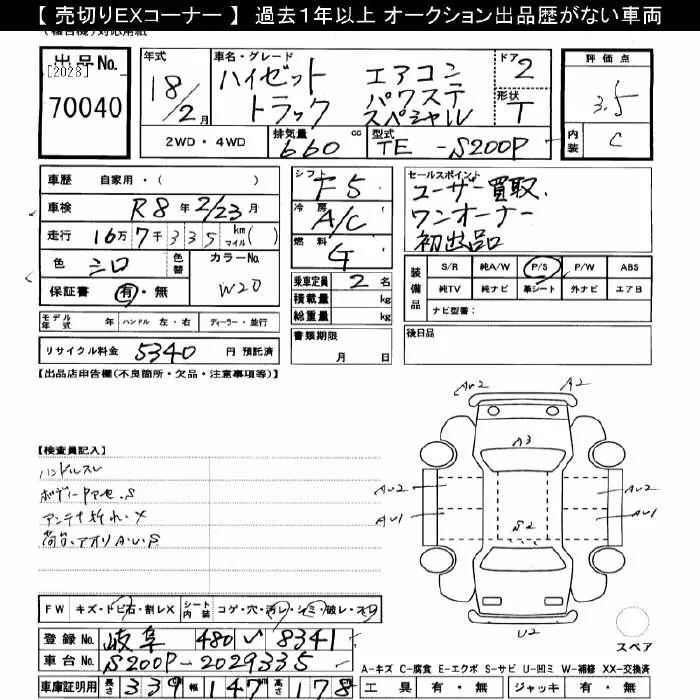 【 売切りEXコーナー 】 過去1年以上 オークション出品歴がない車両
出品No.
[2028]
70040
年式 18/2月
車名・グレード ハイゼット エアコン
トラック パワステ
スペシャル
ドア 2
形状 T
評価点 3.5
内装 C
2WD・4WD
排気量 660 cc
型式 TE-S200P
車歴 自家用・( )
車検 R8年2/23月
走行 16万7千335 km マイル( )
色 シロ 色替 カラーNo. W20
保証書 有・無
モデル年式 年 ハンドル 左・右 ディーラー・並行
リサイクル料金 5340 円 預託済
シフト F5
冷房 A/C
燃料 G
乗車定員 2 名
積載量 kg
総重量 kg
書類期限
月 日
セールスポイント
ユーザー買取.
ワンオーナー
初出品
装備品
S/R 純A/W P/S P/W ABS
純TV 純ナビ 革シート 外ナビ エアB
ナビ型番:
後日品
【出品店申告欄(不良箇所・欠品・注意事項等)】
【検査員記入】
ハンドルスレ
アンテナ折れ.X
荷台.アオリA.U.S
AU2 A2
A3
AU2 AU2
AU1 AU1
S2
U2
スペア
FW キズ・トビ石・割レX シート内装 コゲ・穴・汚レ・シミ・破レ・スレ
登録No. 岐阜 480 い 8341
車台No. S200P-2029335
車庫証明用 長さ 339 幅 147 高さ 178
A-キズ C-腐食 E-エクボ S-サビ U-凹ミ W-補修 XX-交換済
工具 有・無 ジャッキ 有・無